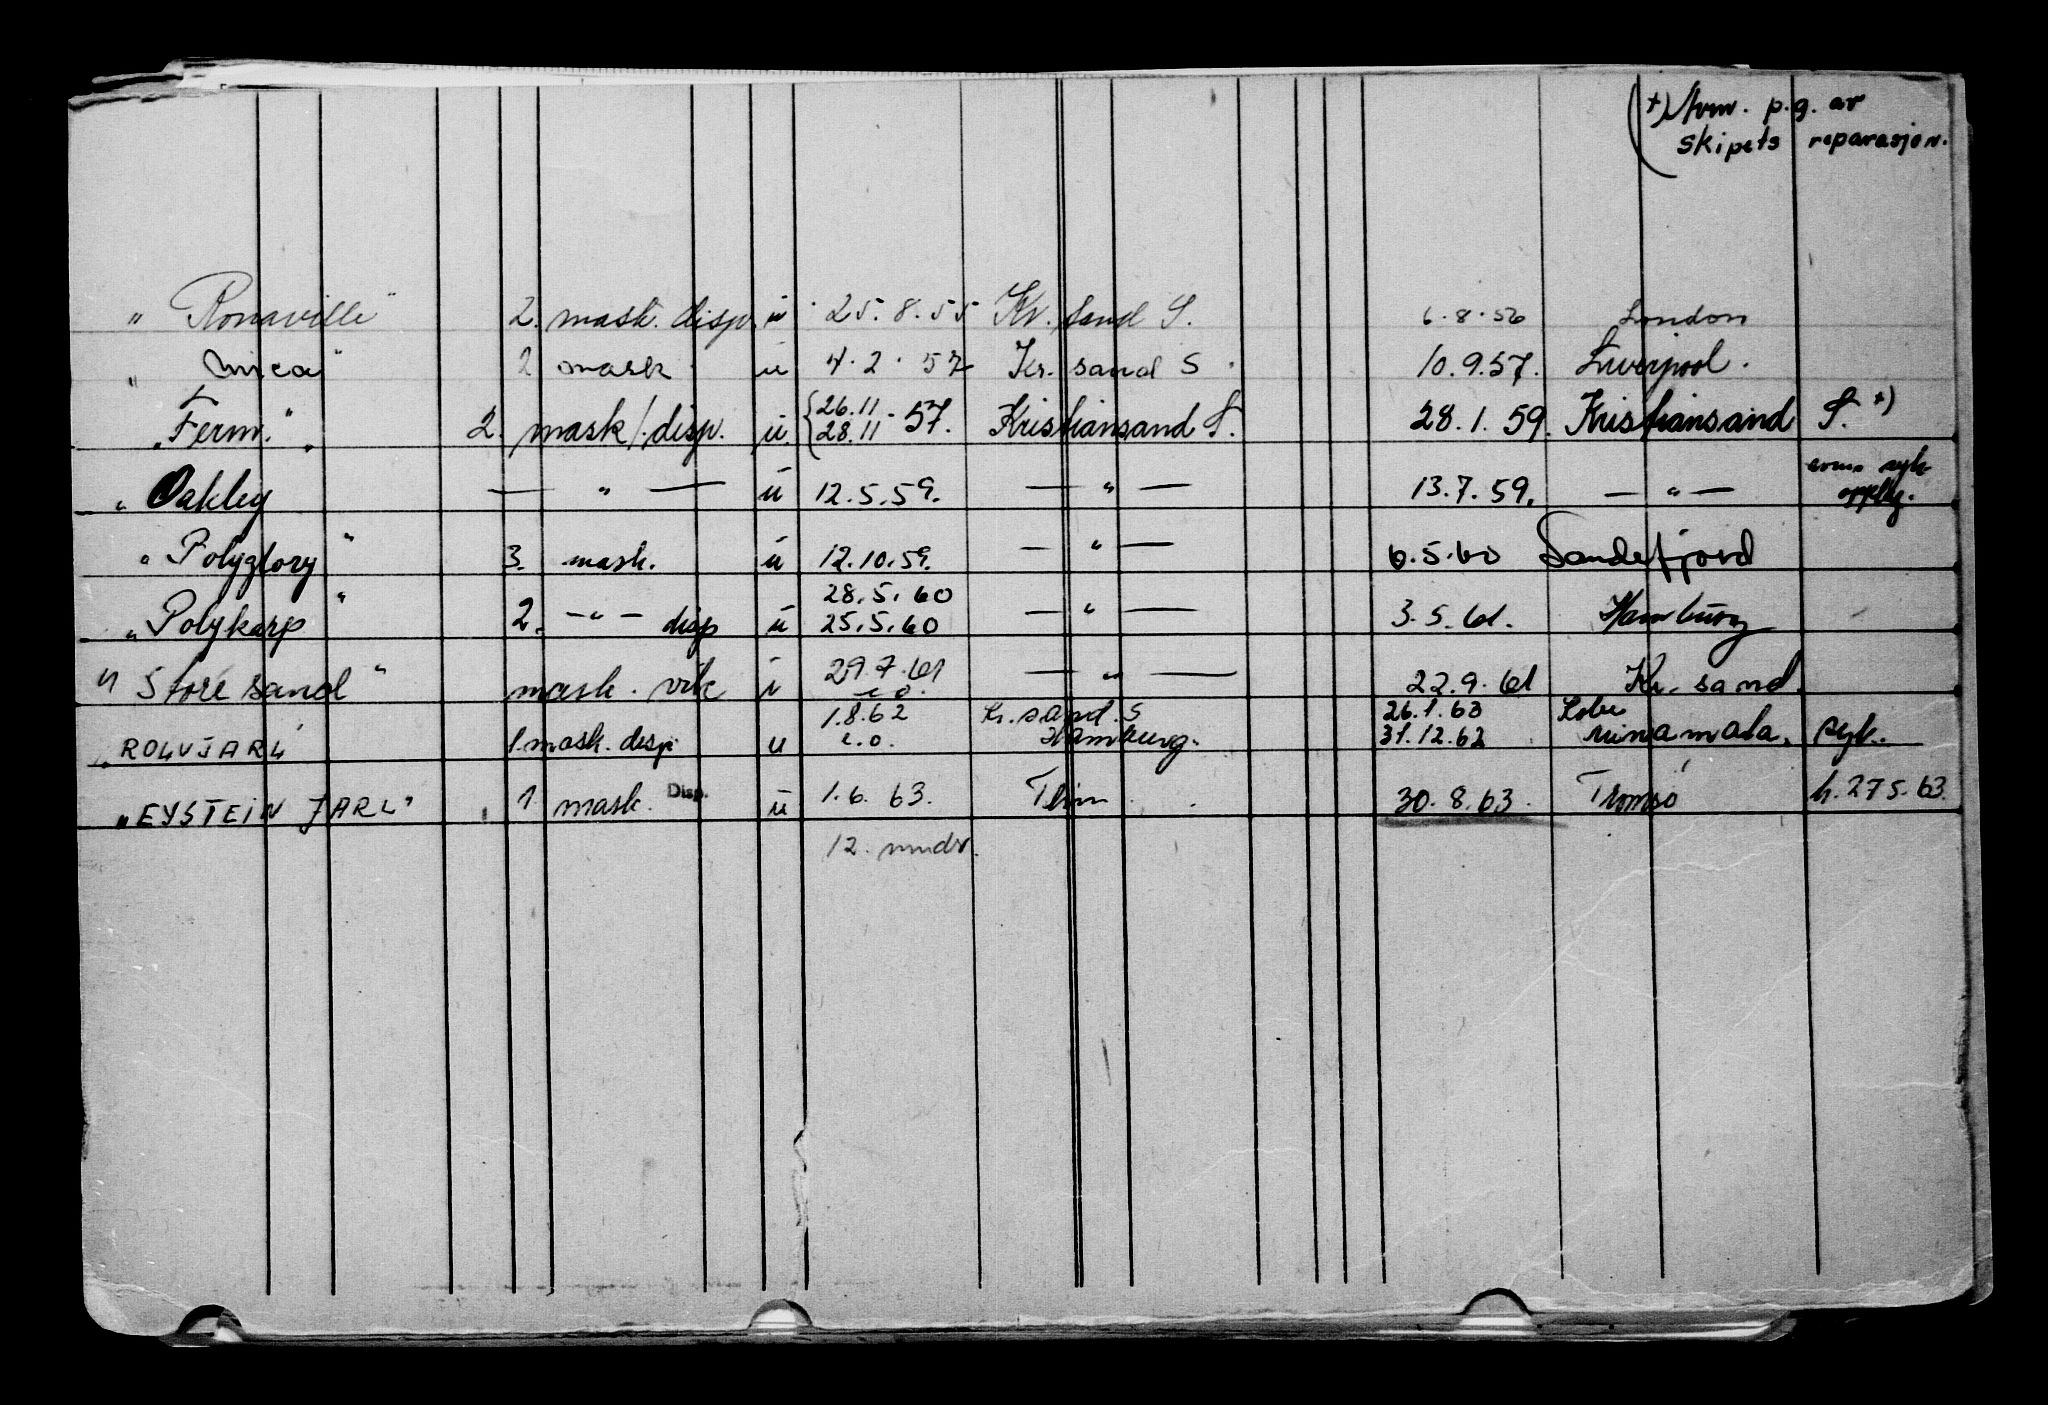 +) Avm. p.g. av
skipets reparasjon.
" Ronaville" 2. mask. disp. u 25.8.55 Kr. sand S. 6.8.56 London
" Mica" 2 mask u 4.2.57 Kr. sand S. 10.9.57. Liverpool.
"Ferm." 2. mask/.disp. u. {26.11 28.11 .57. Kristiansand S. 28.1.59. Kristiansand S. +)
" Oakley — " — u 12.5.59. — " — 13.7.59. — " —
" Polyglory " 3. mask. u 12.10.59. — " — 6.5.60 Sandefjord
28.5.60
" Polykarp " 2. — " — disp u 25.5.60 — " — 3.5.61. Hamburg
" Storesand " mask. vik u 29.7.61 — " — 22.9.61 Kr. sand.
1.8.62 Kr. sand. S 26.1.63 Kobe
" ROLVJARL 1. mask. disp u Hamburg. 31.12.62 Minamata. syk.
"EYSTEIN JARL" 1. mask. Disp. u 1.6.63. Thm 30.8.63. Tromsø h. 27 5. 63.
12. mndr.